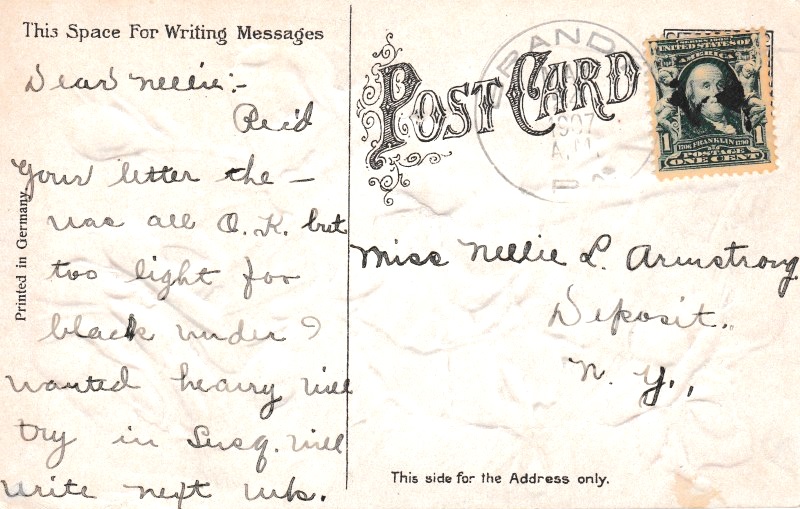 This Space For Writing Messages
Dear Nellie:-
Rec'd
your letter the —
was all O.K. but
too light for
black under ?
wanted heavy will
try in Susq. will
write next wk.
Printed in Germany.
POST CARD
BRAND
1907
A.M.
UNITED STATES OF
AMERICA
1706 FRANKLIN 1790
1 POSTAGE 1
ONE CENT
Miss Nellie L. Armstrong
Deposit.
N. Y.,
This side for the Address only.